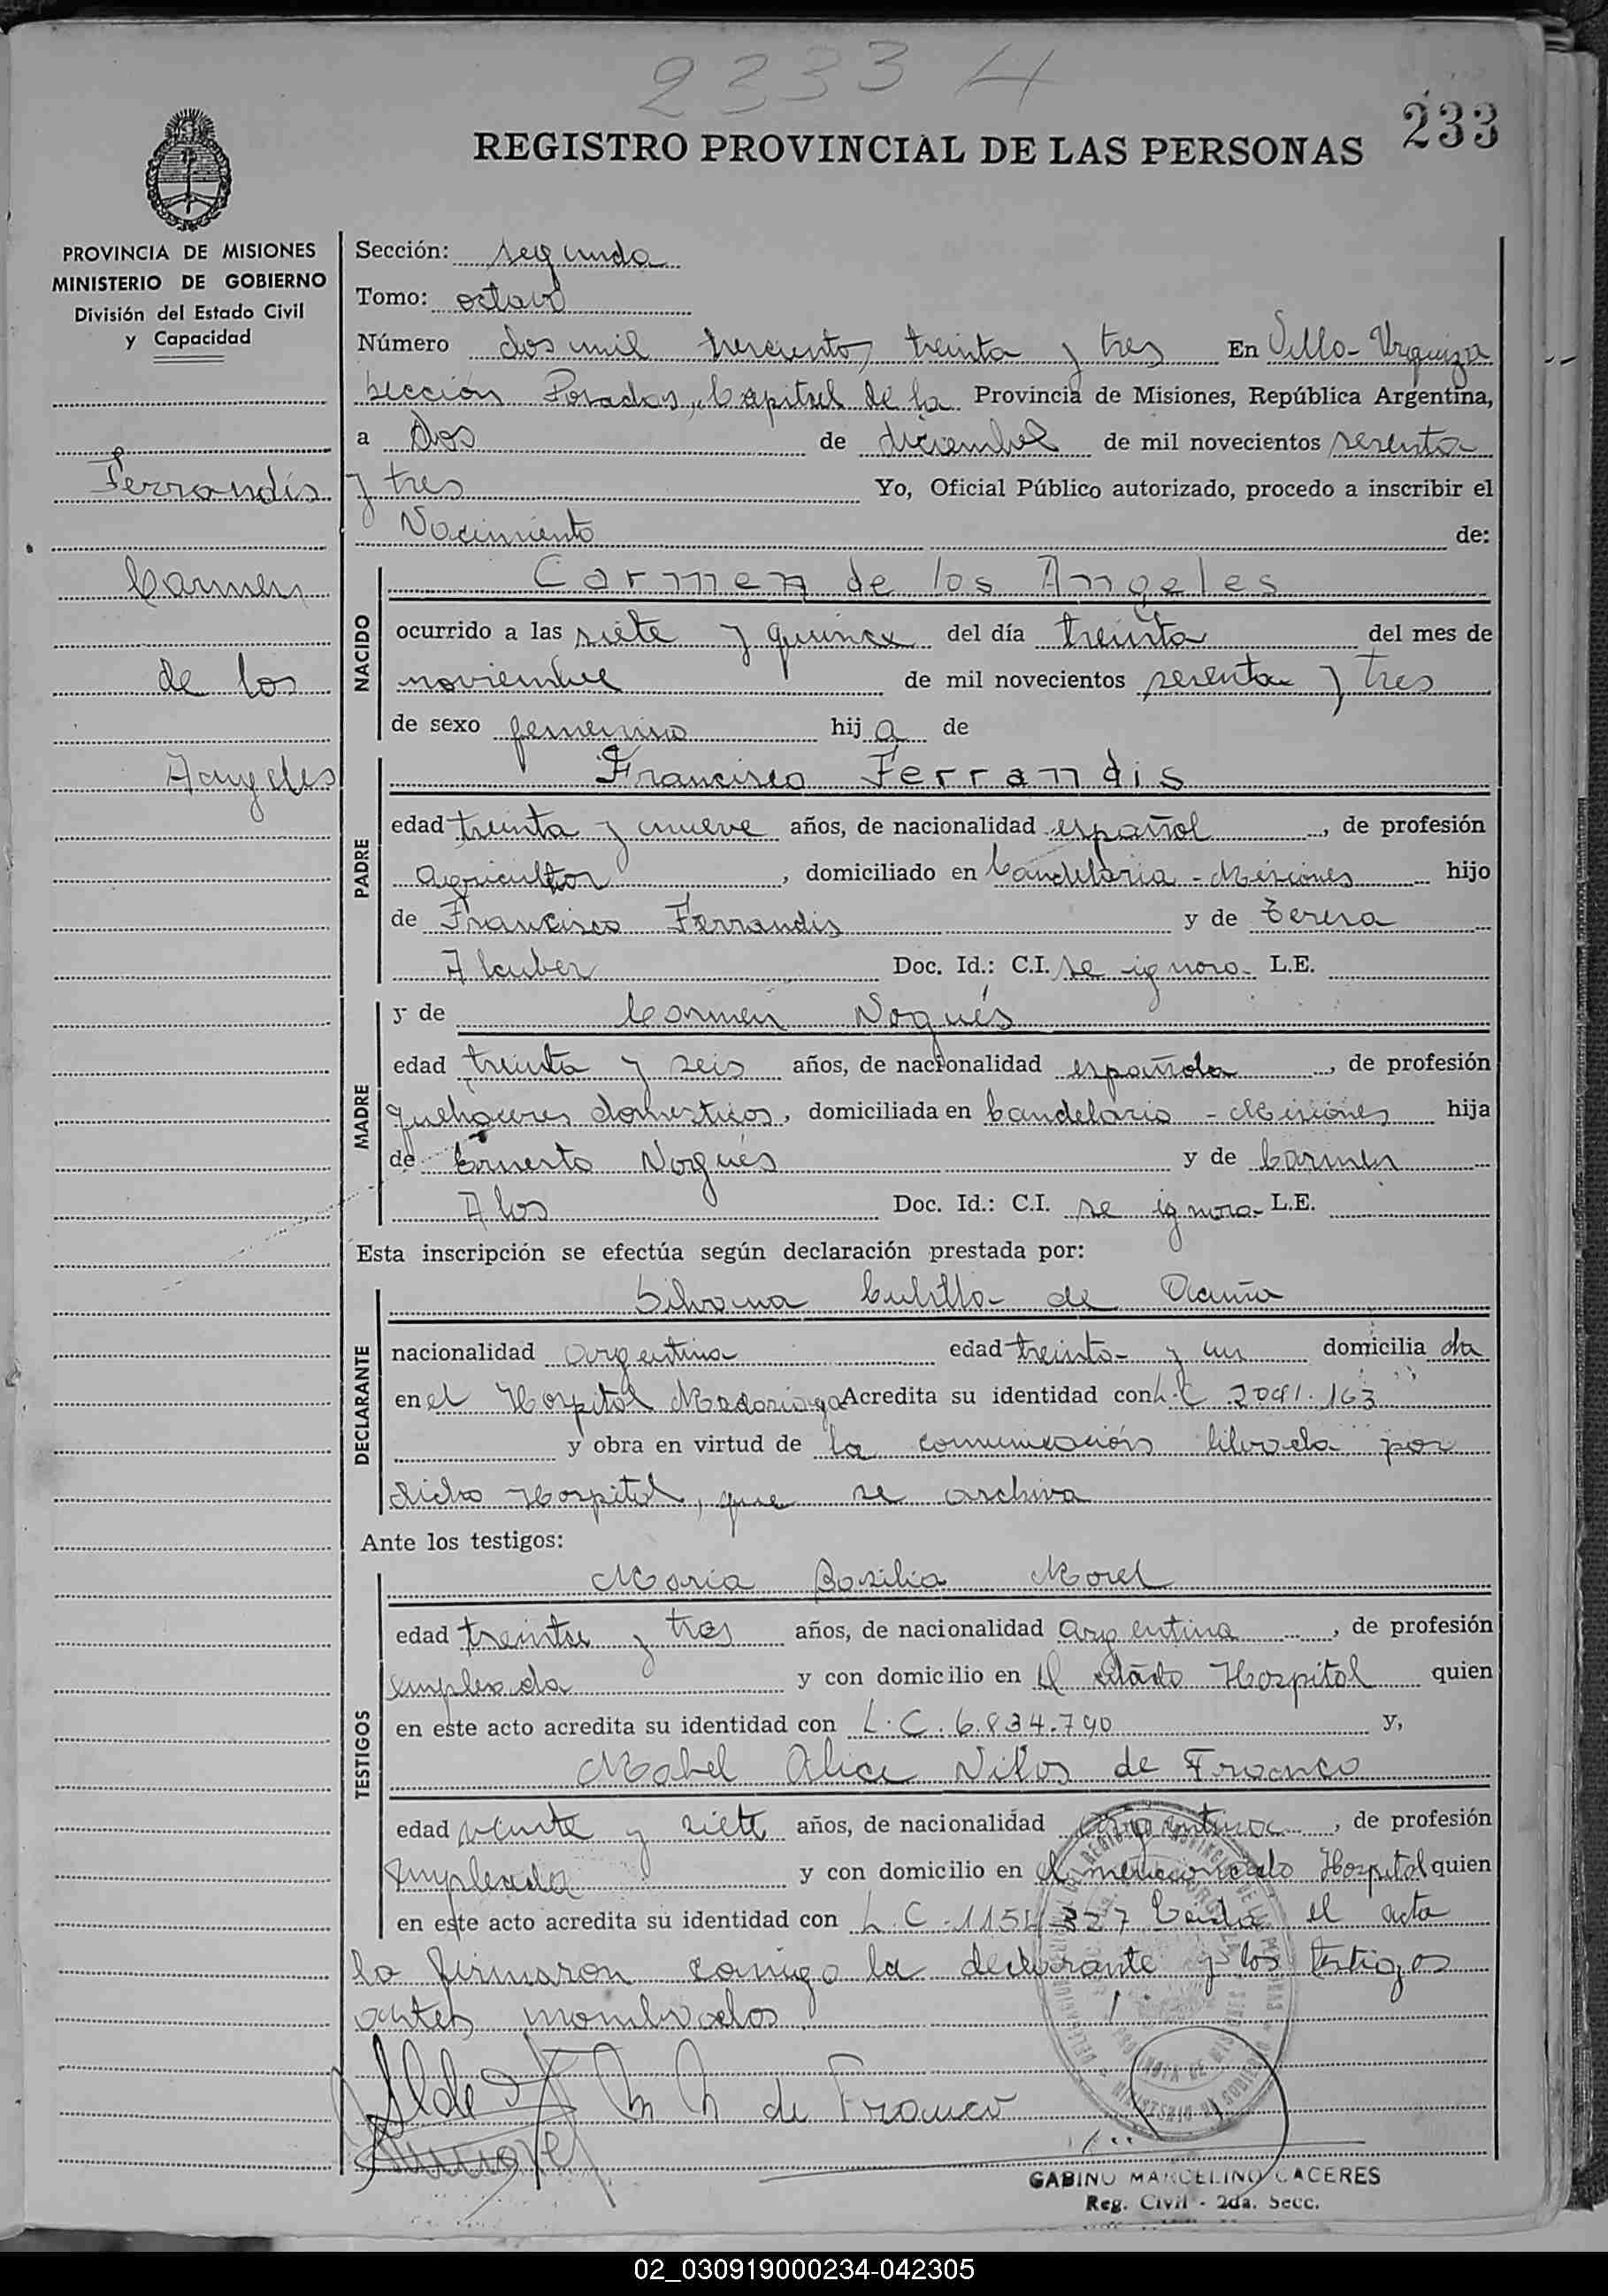 2333 4
233
REGISTRO PROVINCIAL DE LAS PERSONAS
PROVINCIA DE MISIONES
MINISTERIO DE GOBIERNO
División del Estado Civil
y Capacidad
Ferrandis
Carmen
de los
Angeles
Sección: segunda
Tomo: octavo
Número dos mil trescientos treinta y tres En Villa Urquiza
Sección Posadas, Capital de la Provincia de Misiones, República Argentina,
a Dos de diciembre de mil novecientos sesenta
y tres Yo, Oficial Público autorizado, procedo a inscribir el
Nacimiento de:
NACIDO
Carmen de los Angeles
ocurrido a las siete y quince del día treinta del mes de
noviembre de mil novecientos sesenta y tres
de sexo femenino hij a de
PADRE
Francisco Ferrandis
edad treinta y nueve años, de nacionalidad español, de profesión
agricultor, domiciliado en Candelaria - Misiones hijo
de Francisco Ferrandis y de Teresa
Alcuber Doc. Id.: C.I. se ignora - L.E.
MADRE
y de Carmen Nogués
edad treinta y seis años, de nacionalidad española, de profesión
quehaceres domesticos, domiciliada en Candelaria - Misiones hija
de Ernesto Nogués y de Carmen
Alos Doc. Id.: C.I. se ignora - L.E.
Esta inscripción se efectúa según declaración prestada por:
DECLARANTE
Silvana de Acuña
nacionalidad argentina edad treinta y un domicilia da
en el Hospital Madariaga Acredita su identidad con L.C 2.091.163
y obra en virtud de la comunicación librada por
dicho Hospital, que se archiva
Ante los testigos:
TESTIGOS
Maria Basilia Morel
edad treinta y tres años, de nacionalidad argentina, de profesión
empleada y con domicilio en el citado Hospital quien
en este acto acredita su identidad con L.C. 6.834.790 y,
Mabel Alice de Franco
edad veinte y siete años, de nacionalidad argentina, de profesión
empleada y con domicilio en el mencionado Hospital quien
en este acto acredita su identidad con L.C. 1154327 Leida el acta
la firmaron conmigo la declarante y los testigos
antes nombrados
M N de Franco
GABINO MARCELINO CACERES
Reg. Civil - 2da. Secc.
02_030919000234-042305